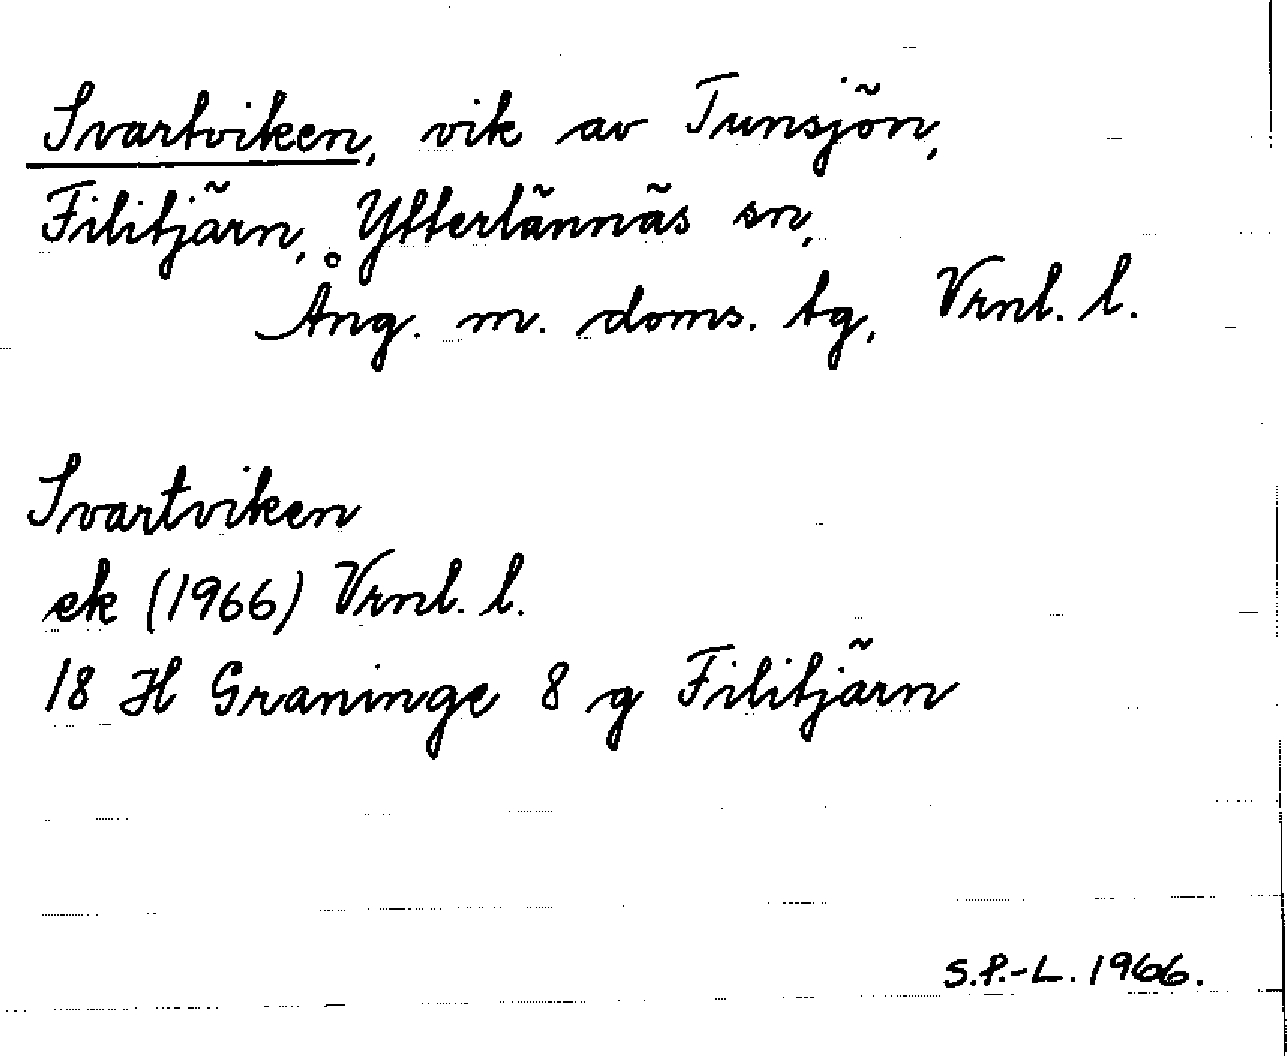 Svartviken, vik av Tunsjön,
Filitjärn, Ytterlännäs sn,
Ång. m. doms. tg, Vrnl. l.
Svartviken
ek (1966) Vrnl. l.
18 H Graninge 8 g Filitjärn
S.P.-L. 1966.